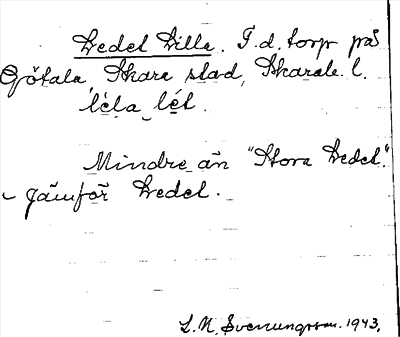 Ledet Lilla. F.d. torp på
Götala, Skara stad, Skarab. l.
lèla lét.
Mindre än "Stora Ledet".
– jämför Ledet.
S. N. Svenungsson. 1943.